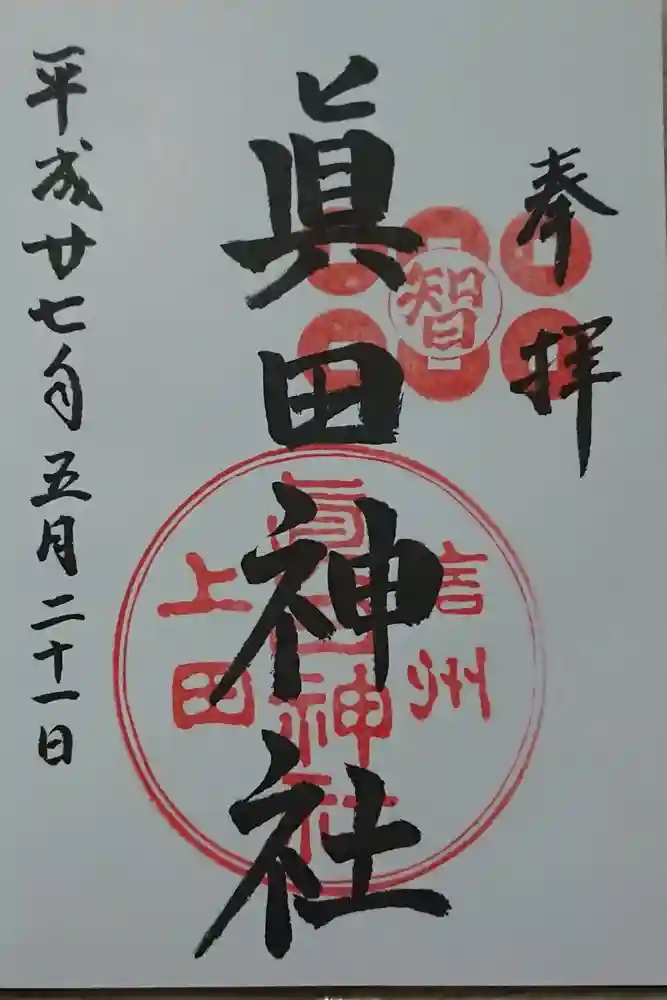 奉拝
智
眞田神社
信州
眞田神社
上田
平成廿七年五月二十一日